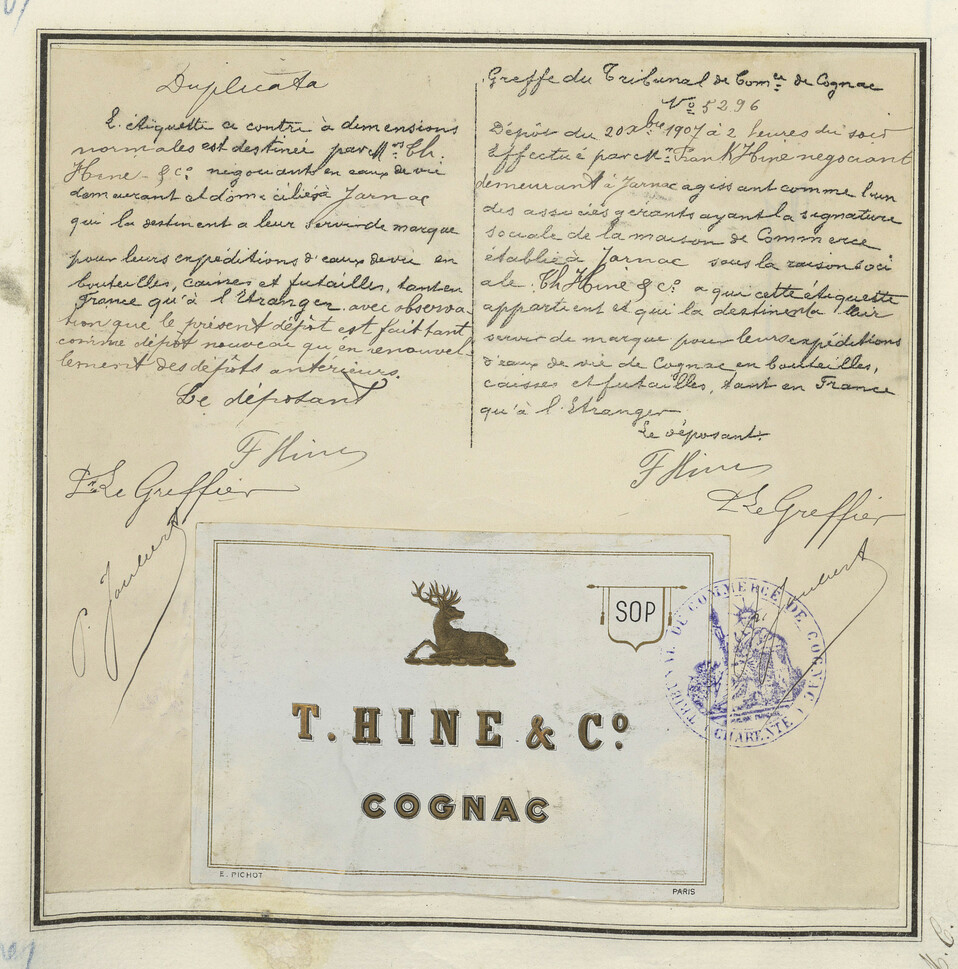 Duplicata
L'étiquette ci contre à dimensions
normales est destinée par Mrs Th.
Hine & Co négociants en eaux de vie
demeurant et domiciliés à Jarnac
qui la destinent a leur servir de marque
pour leurs expéditions d'eaux de vie en
bouteilles, caisses et futailles, tant en
France qu'à l'Etranger. avec observa-
tion que le présent dépôt est fait tant
comme dépôt nouveau qu'en renouvel-
lement des dépôts antérieurs.
Le déposant
F Hine
Pr Le Greffier
P. Joubert
Greffe du Tribunal de Comce de Cognac
No 5296
Dépôt du 20 Xbre 1907 à 2 heures du soir
Effectué par Mr Frank Hine négociant
demeurant à Jarnac agissant comme l'un
des associés gerants ayant la signature
sociale de la maison de Commerce
établie à Jarnac sous la raison soci
ale Th Hine & Co a qui cette étiquette
appartient et qui la destinent à leur
servir de marque pour leurs expéditions
d'eaux de vie de Cognac en bouteilles,
caisses et futailles, tant en France
qu'à l'Etranger
Le déposant
F Hine
Pr Le Greffier
Joubert
SOP
T. HINE & Co
COGNAC
E. PICHOT
PARIS
TRIBUNAL DU COMMERCE DE COGNAC
(CHARENTE)